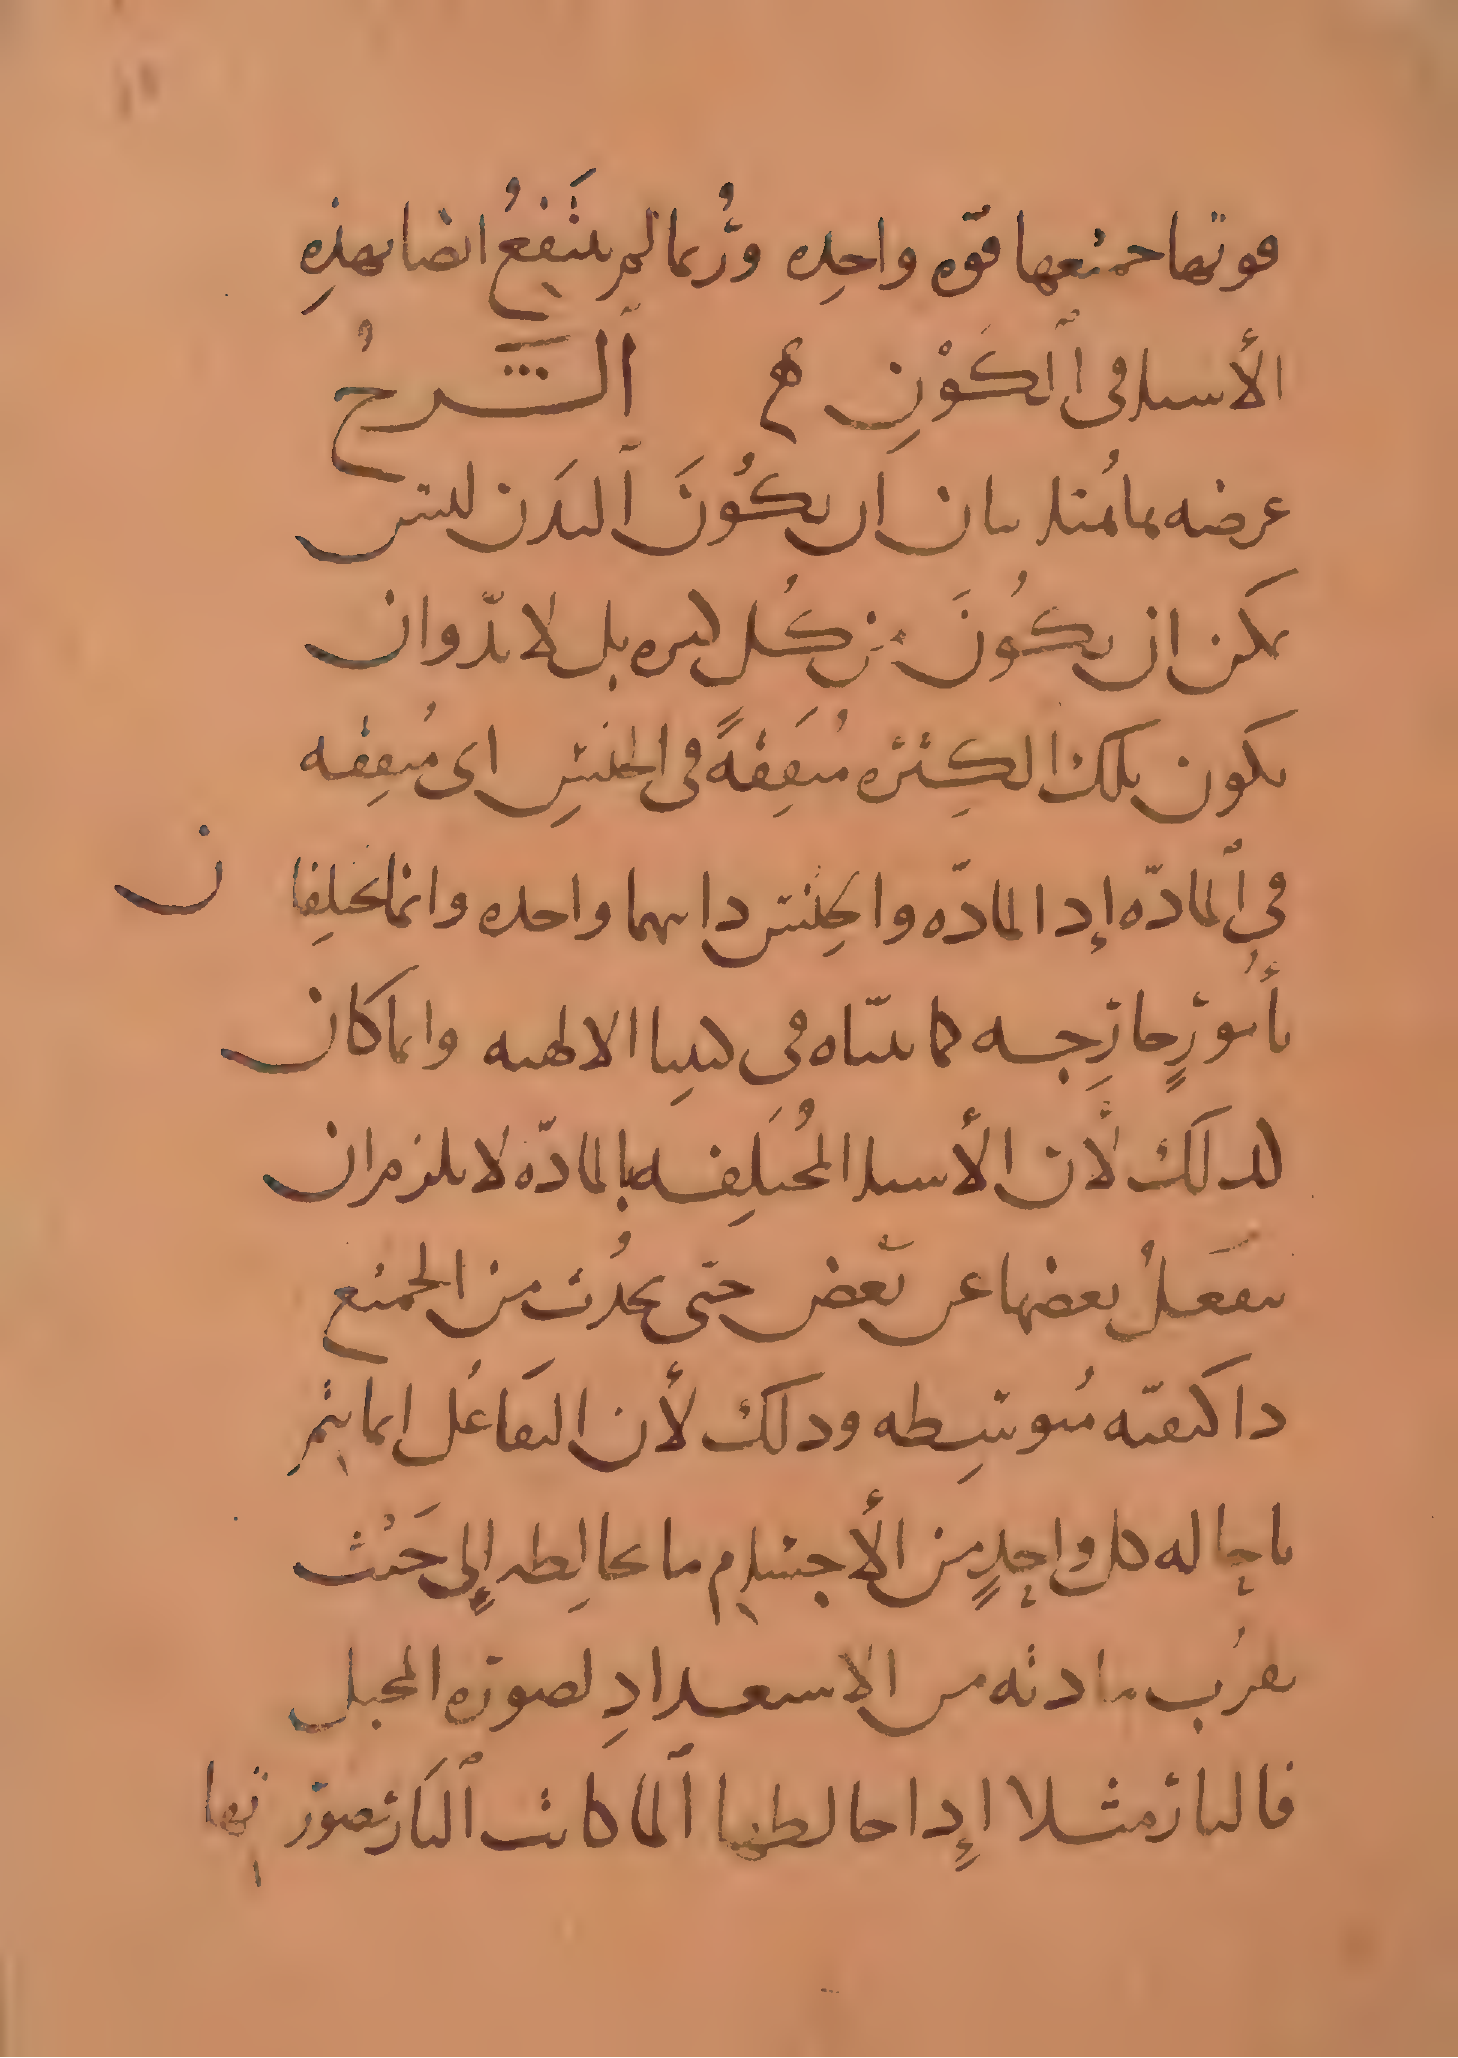 قوتها جميعها قوّه واحِده ورُّبما لم ينتَفعُ ايضا بهذِهِ
الأشيا فى ٱلكَوْنِ ه ٱلشَّرحُ
غرضه بما مُثله بيان اَن يكُونَ ٱلبدَن ليس
يمكن ان يكُونَ من كُل كثره بل لا بدّ وان
يكون تلك الكِثرَه متَفِقةً فى الجنسِ اى مُتفِقه
فى ٱلمادّه إذ المادّه والجِنس ذاتهما واحده وانما تختلِفان
بأُمورٍ خارِجه كما بيّناه فى كتبِنا الالهيه وانما كان
كذلك لأن الأشيا المُختَلِفه بالمادّه لا يلزم ان
ينفَعلُ بعضها عن بعض حتى يحدُث من الجميع
ذا كيفيّه مُتوسِطه وذلك لأن التفَاعُل انما يتم
باحاله كل واحِدٍ من الأجسام ما يخالِطه إلى حَيْث
يقرُب مادته من الاستعدادِ لصوره المحيل
فالنار مثلا إذا خالطها ٱلما كانت ٱلنَار بصورتها